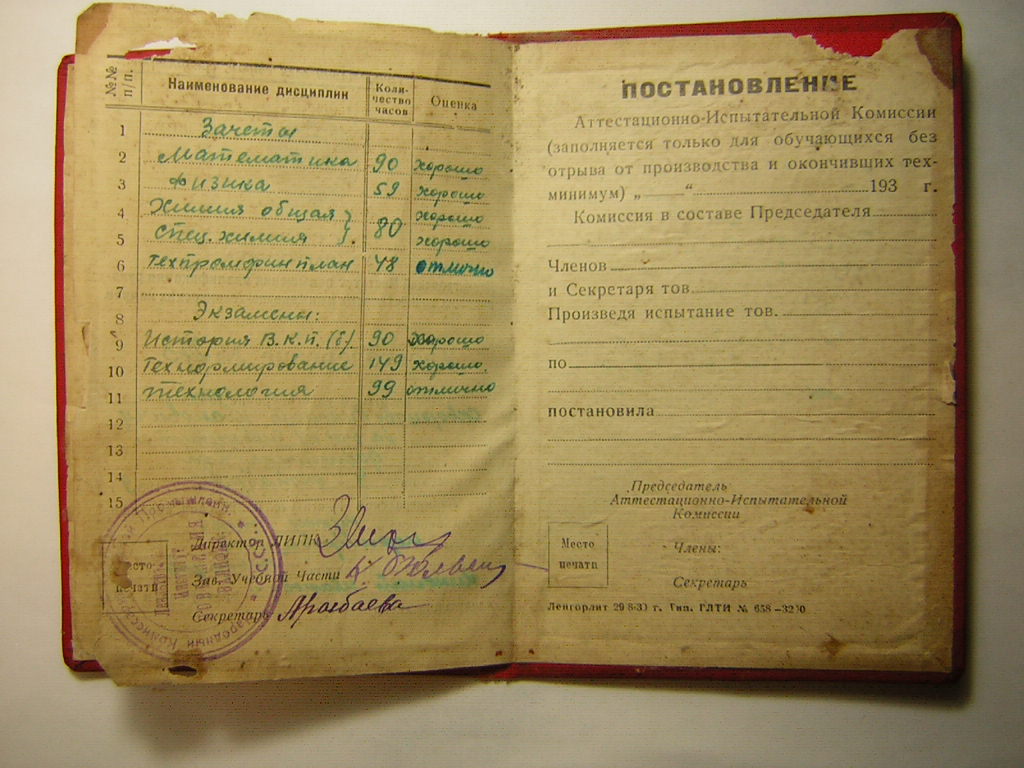 №№ п/п.
Наименование дисциплин
Количество часов
Оценка
1 Зачеты
2 Математика 90 хорошо
3 Физика 59 хорошо
4 Химия общая } 80 хорошо
5 Спец. химия } хорошо
6 Техпромфинплан 48 отлично
7
8 Экзамены:
9 История В.К.П.(б) 90 хорошо
10 Технормирование 149 хорошо.
11 Технология 99 отлично
12
13
14
15
Директор ЛИПК
Зав. Учебной Части
Секретарь
Место
печати
ПОСТАНОВЛЕНИЕ
Аттестационно-Испытательной Комиссии
(заполняется только для обучающихся без
отрыва от производства и окончивших тех-
минимум) „ “ 193 г.
Комиссия в составе Председателя
Членов
и Секретаря тов.
Произведя испытание тов.
по
постановила
Председатель
Аттестационно-Испытательной
Комиссии
Место
печати
Члены:
Секретарь
Ленгорлит Тип. ГЛТИ №